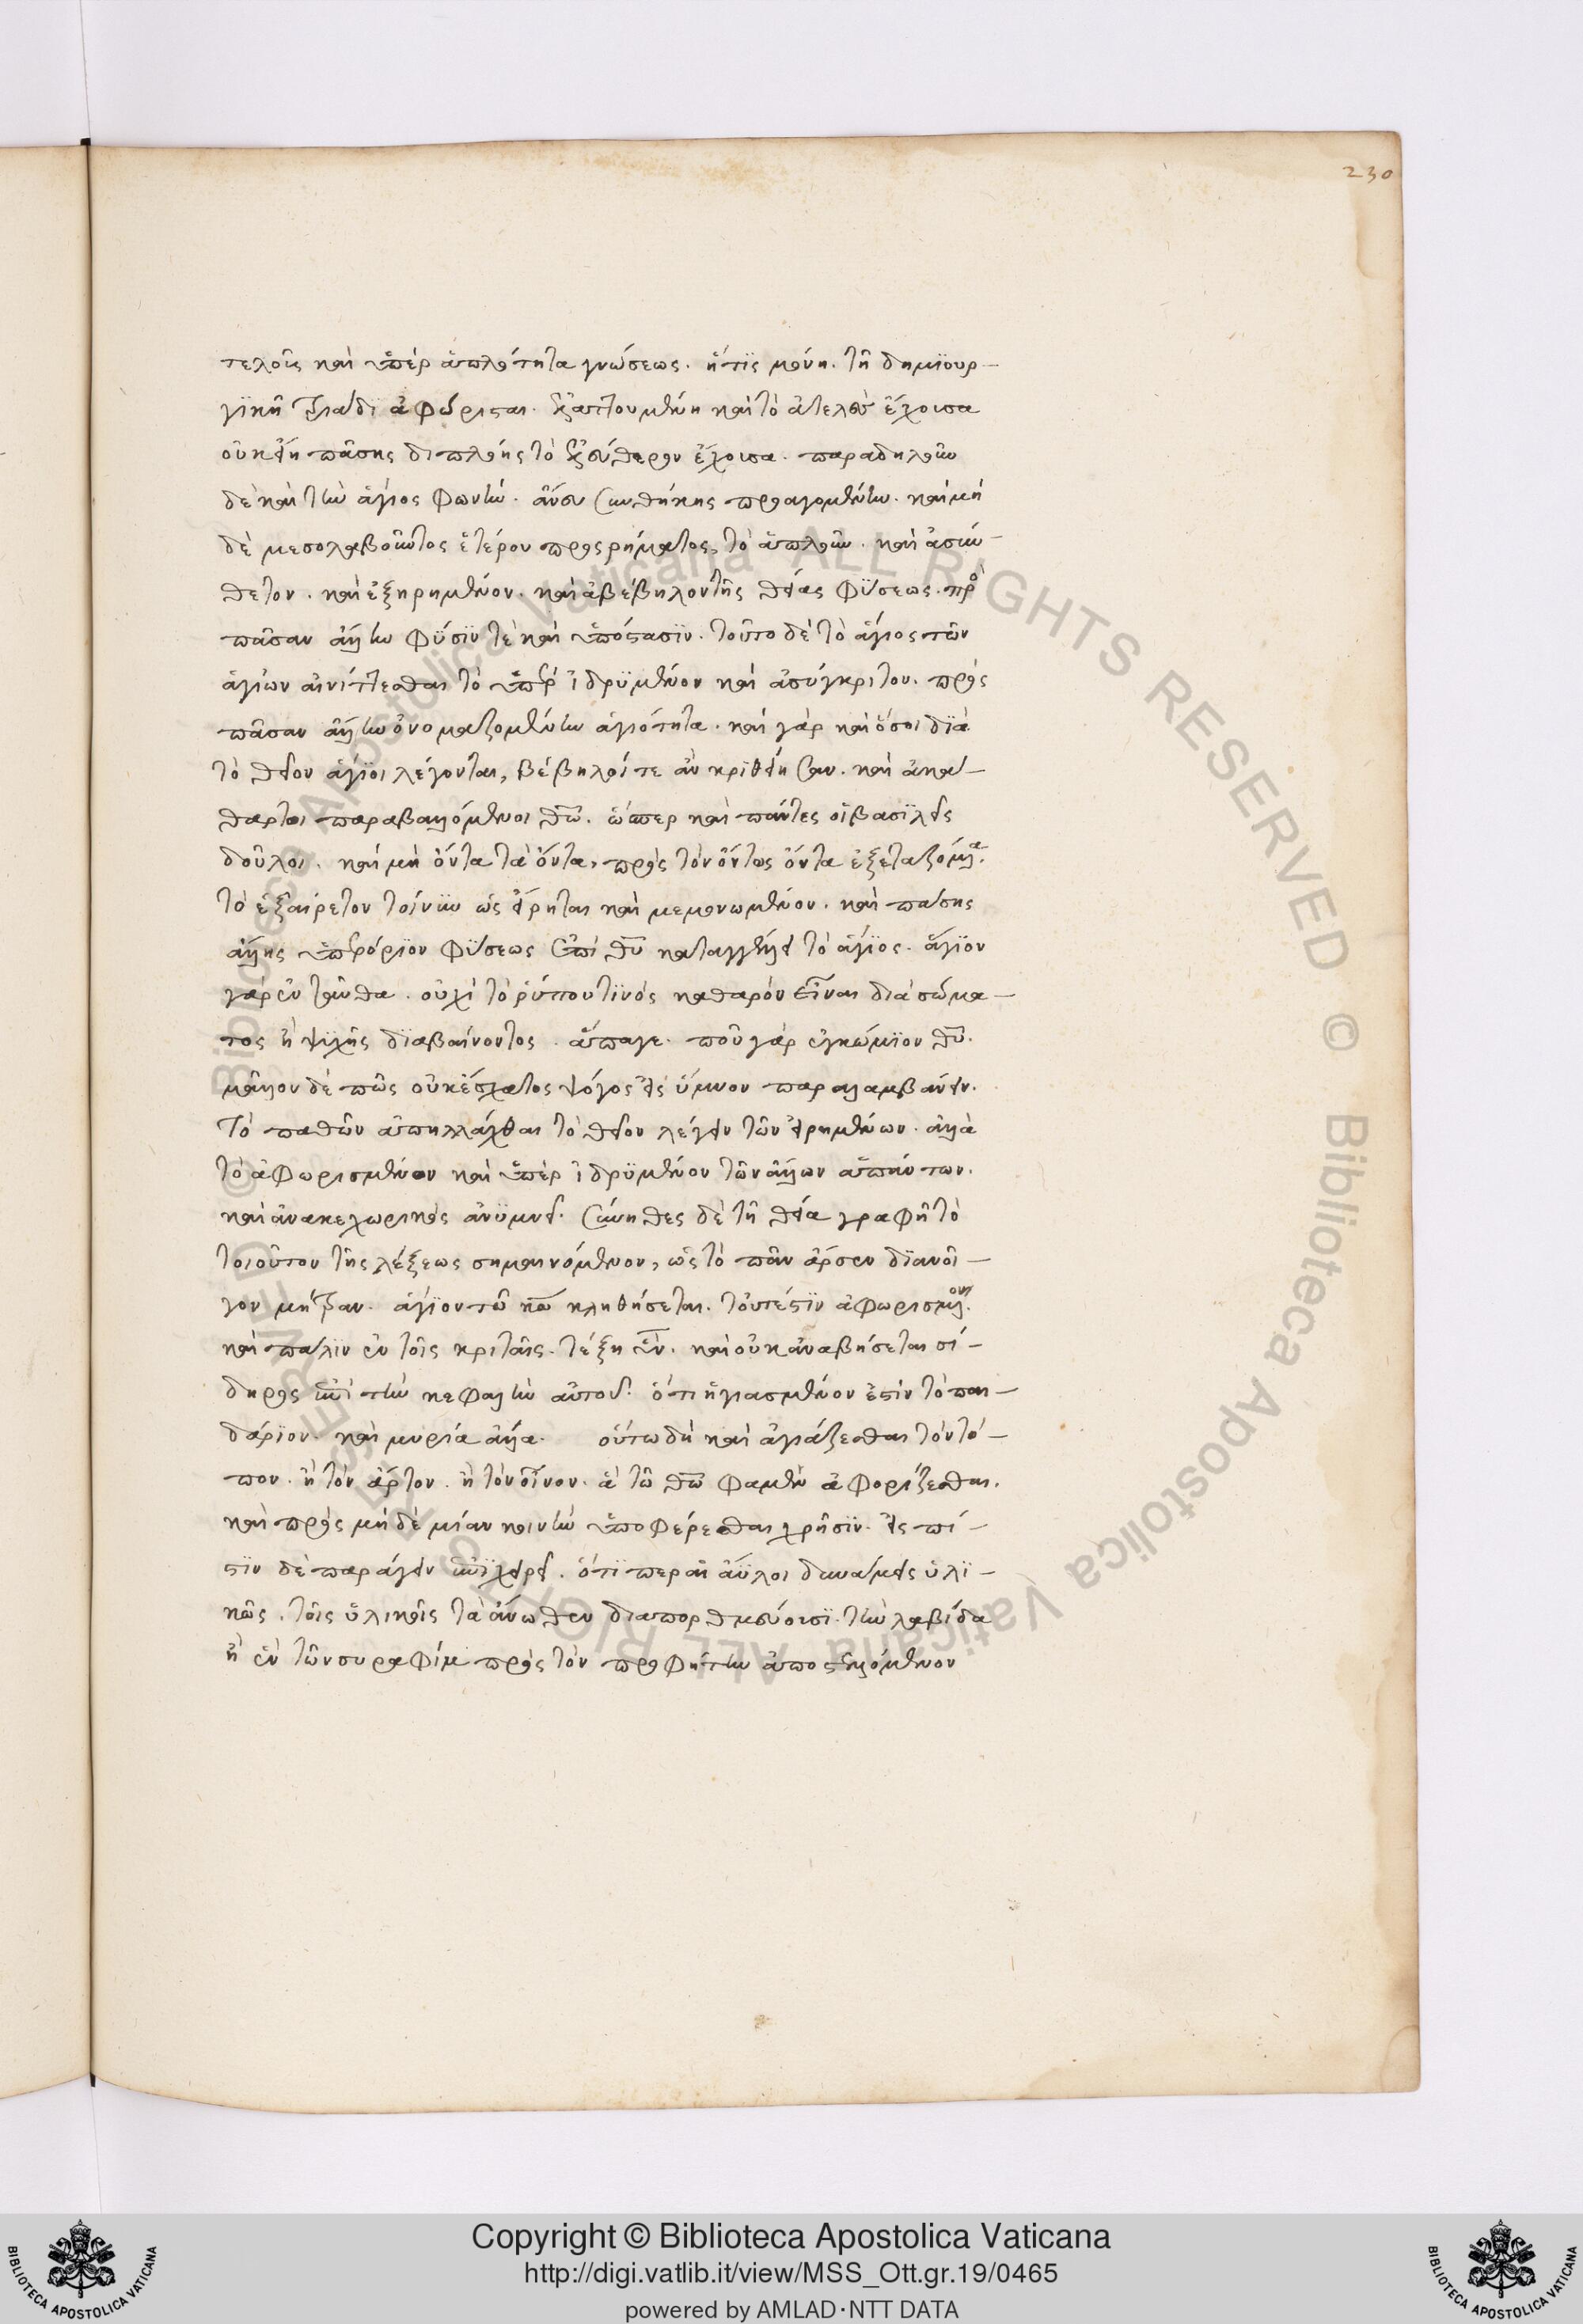 230
τελοῖς καὶ ὑπὲρ ἁπλότητα γνώσεως. ἥτις μόνη. τῇ δημϊουρ-
γϊκῇ τριάδι ἀφώρισται. ἐξαπτουμένη καὶ τὸ ἀτελὲς ἔχουσα
οὐκ πάσης διπλόης τὸ ἔχουσα. παραδηλοῦν
δὲ καὶ τὴν ἅγιος φωνὴν. ἄνευ συνθήκης προαγομένην. καὶ μὴ
δὲ μεσολαβοῦντος ἑτέρου προσρήματος, τὸ ἁπλοῦν. καὶ ἀσύν-
θετον. καὶ ἐξηρημένον. καὶ ἀβέβηλον τῆς θείας φύσεως. πρὸ
πᾶσαν ἄλλην φύσϊν τὲ καὶ ὑπόστασϊν. τοῦτο δὲ τὸ ἅγιος τῶν
ἁγίων αἰνίττεσθαι τὸ ὑπεριδρϋμένον καὶ ἀσύγκριτον. πρὸς
πᾶσαν ἄλλην ὀνομαζομένην ἁγιότητα. καὶ γὰρ καὶ ὅσοι δϊὰ
τὸ θεῖον ἅγϊοι λέγονται, βέβηλοί τε ἂν κρϊθεῖησαν. καὶ ἀκά-
θαρτοι παραβαλλόμενοι θῶ. ὥσπερ καὶ πάντες οἱ βασϊλεῖς
δοῦλοι. καὶ μὴ ὄντα τὰ ὄντα, πρὸς τὸν ὄντως ὄντα ἐξεταζόμενα.
τὸ ἐξαίρετον τοίνυν ὡς εἴρηται καὶ μεμονωμένον. καὶ πάσης
ἄλλης ὑπερόριον φϋσεως ἐπὶ θῦ καταγγέλλει τὸ ἅγϊος. ἅγϊον
γὰρ ἐνταῦθα. οὐχὶ τὸ ῥύπου τϊνὸς καθαρὸν εἶναι διὰ σώμα-
τος ἢ ψυχῆς δϊαβαίνοντος. ἄπαγε. ποῦ γὰρ ἐγκώμϊον θῦ.
μᾶλλον δὲ πῶς οὐκ ἔσχατος ψόγος εἰς ὕμνον παραλαμβάνειν.
Τὸ παθῶν ἀπηλλάχθαι τὸ θεῖον λέγειν τῶν εἰρημένων. ἀλλὰ
τὸ ἀφωρισμένον καὶ ὑπὲρ ἱδρϋμένον τῶν ἄλλων ἁπάντων.
καὶ ἀνακεχωρικὸς ἀνϋμνεῖ. σύνηθες δὲ τῇ θεία γραφῆ τὸ
τοιοῦτον τῆς λέξεως σημαινόμενον, ὡς τὸ πᾶν ἄρσεν δϊανοῖ-
γον μήτραν. ἅγϊον τῶ κῶ κληθήσεται. τουτέστϊν ἀφωρισμένον.
καὶ πάλϊν ἐν τοῖς κριταῖς. τέξη υἱόν. καὶ οὐκ ἀναβήσεται σί-
δηρος ἐπὶ τὴν κεφαλὴν αὐτοῦ. ὅτι ἡγιασμένον ἐστὶν τὸ παι-
δάρϊον. καὶ μυρία ἄλλα. οὕτω δὴ καὶ ἁγιάζεσθαι τὸν τό-
πον. ἢ τὸν ἄρτον. ἢ τὸν οἶνον. ἃ τῶ θῶ φαμὲν ἀφορίζεσθαι.
καὶ πρὸς μὴ δὲ μίαν κοινὴν ὑποφέρεσθαι χρῆσϊν. εἰς πί-
στϊν δὲ παράγειν ἐπϊχειρεῖ. ὅτι περ αἱ ἄϋλοι δυνάμεις ὑλϊ-
κῶς. τοῖς ὑλικοῖς τὰ ἄνωθεν διαπορθμεύουσϊ. τὴν λαβίδα
ἢ ἓν τῶν σεραφὶμ πρὸς τὸν προφήτην ἀποστελλόμενον
Copyright © Biblioteca Apostolica Vaticana
http://digi.vatlib.it/view/MSS_Ott.gr.19/0465
powered by AMLAD·NTT DATA